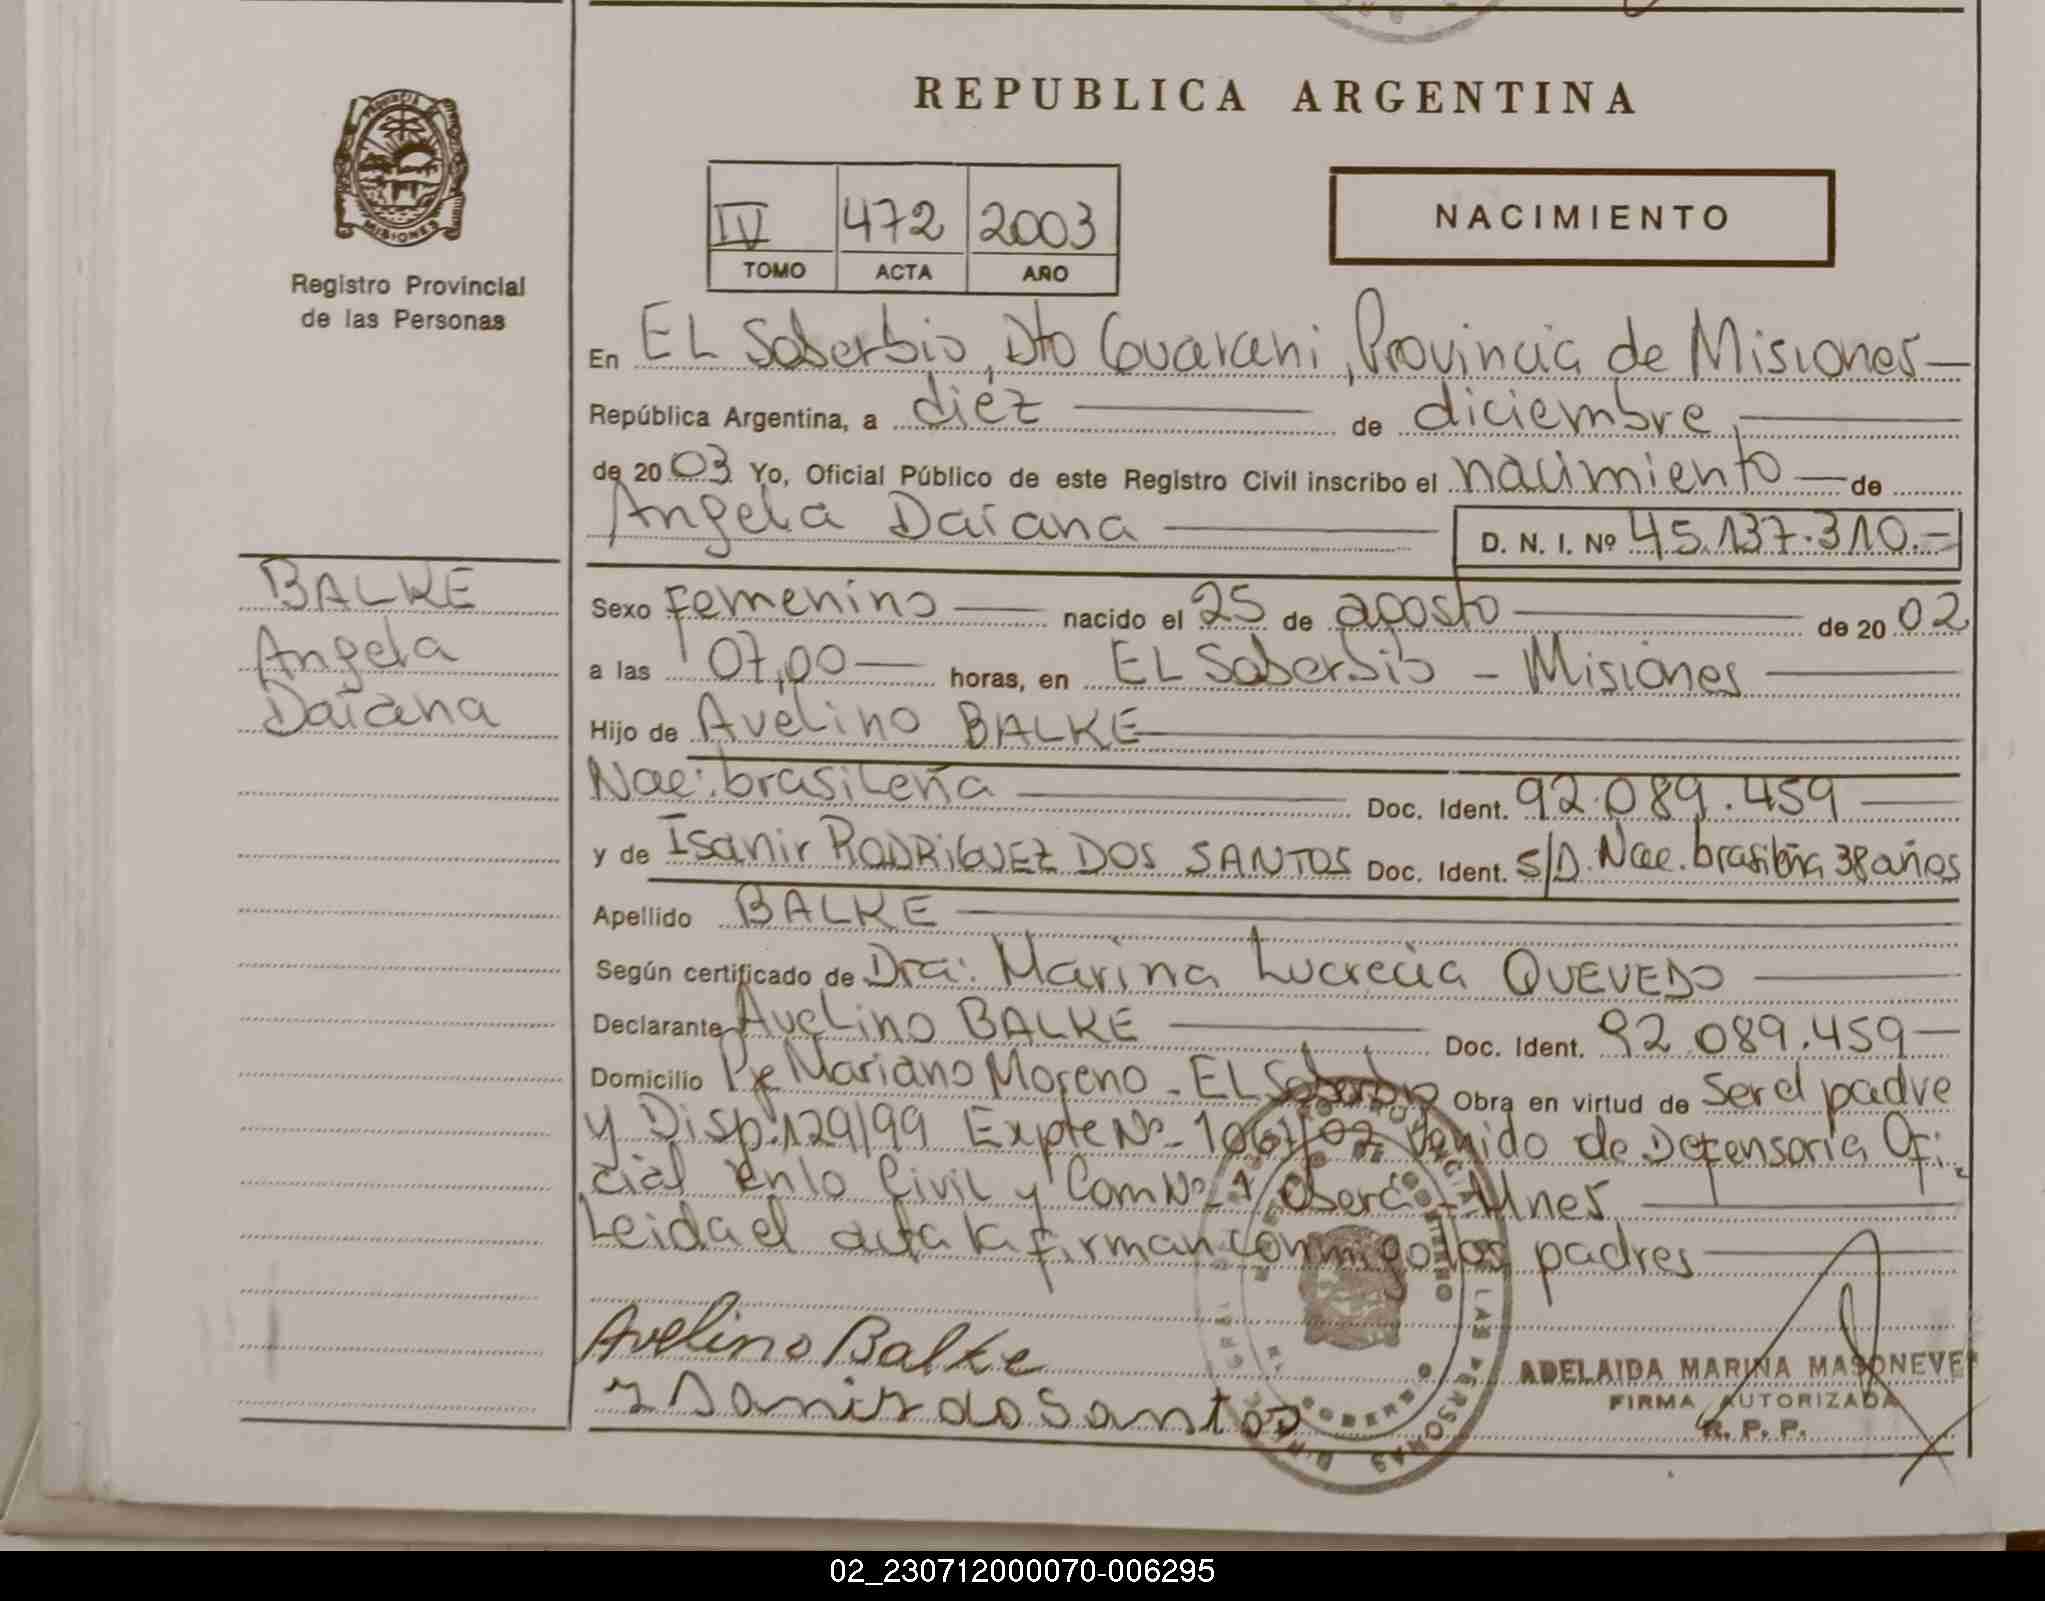 REPUBLICA ARGENTINA
MISIONES
Registro Provincial
de las Personas
IV 472 2003
TOMO ACTA AÑO
NACIMIENTO
En EL Soberbio, Dto Guarani, Provincia de Misiones
República Argentina, a diéz de diciembre
de 2003 Yo, Oficial Público de este Registro Civil inscribo el nacimiento de
Angela Daiana D. N. I. Nº 45.137.310.-
BALKE
Angela
Daiana
Sexo femenino nacido el 25 de agosto de 2002
a las 07,00 horas, en EL Soberbio - Misiones
Hijo de Avelino BALKE
Nac: brasileña Doc. Ident. 92.089.459
y de Isanir RODRIGUEZ DOS SANTOS Doc. Ident. S/D. Nac. brasileña 38 años
Apellido BALKE
Según certificado de Dra: Marina Lucrecia QUEVEDO
Declarante Avelino BALKE Doc. Ident. 92.089.459
Domicilio Pje Mariano Moreno - EL Soberbio Obra en virtud de Ser el padre
y Disp. 129/99 Expte Nº 1061/02 venido de Defensoría Ofi-
cial en lo Civil y Com Nº 1 Oberá - Mnes
Leida el acta la firman conmigo los padres
Avelino Balke
Isanir do Santos
ADELAIDA MARINA MASONEVE
FIRMA AUTORIZADA
R. P. P.
02_230712000070-006295